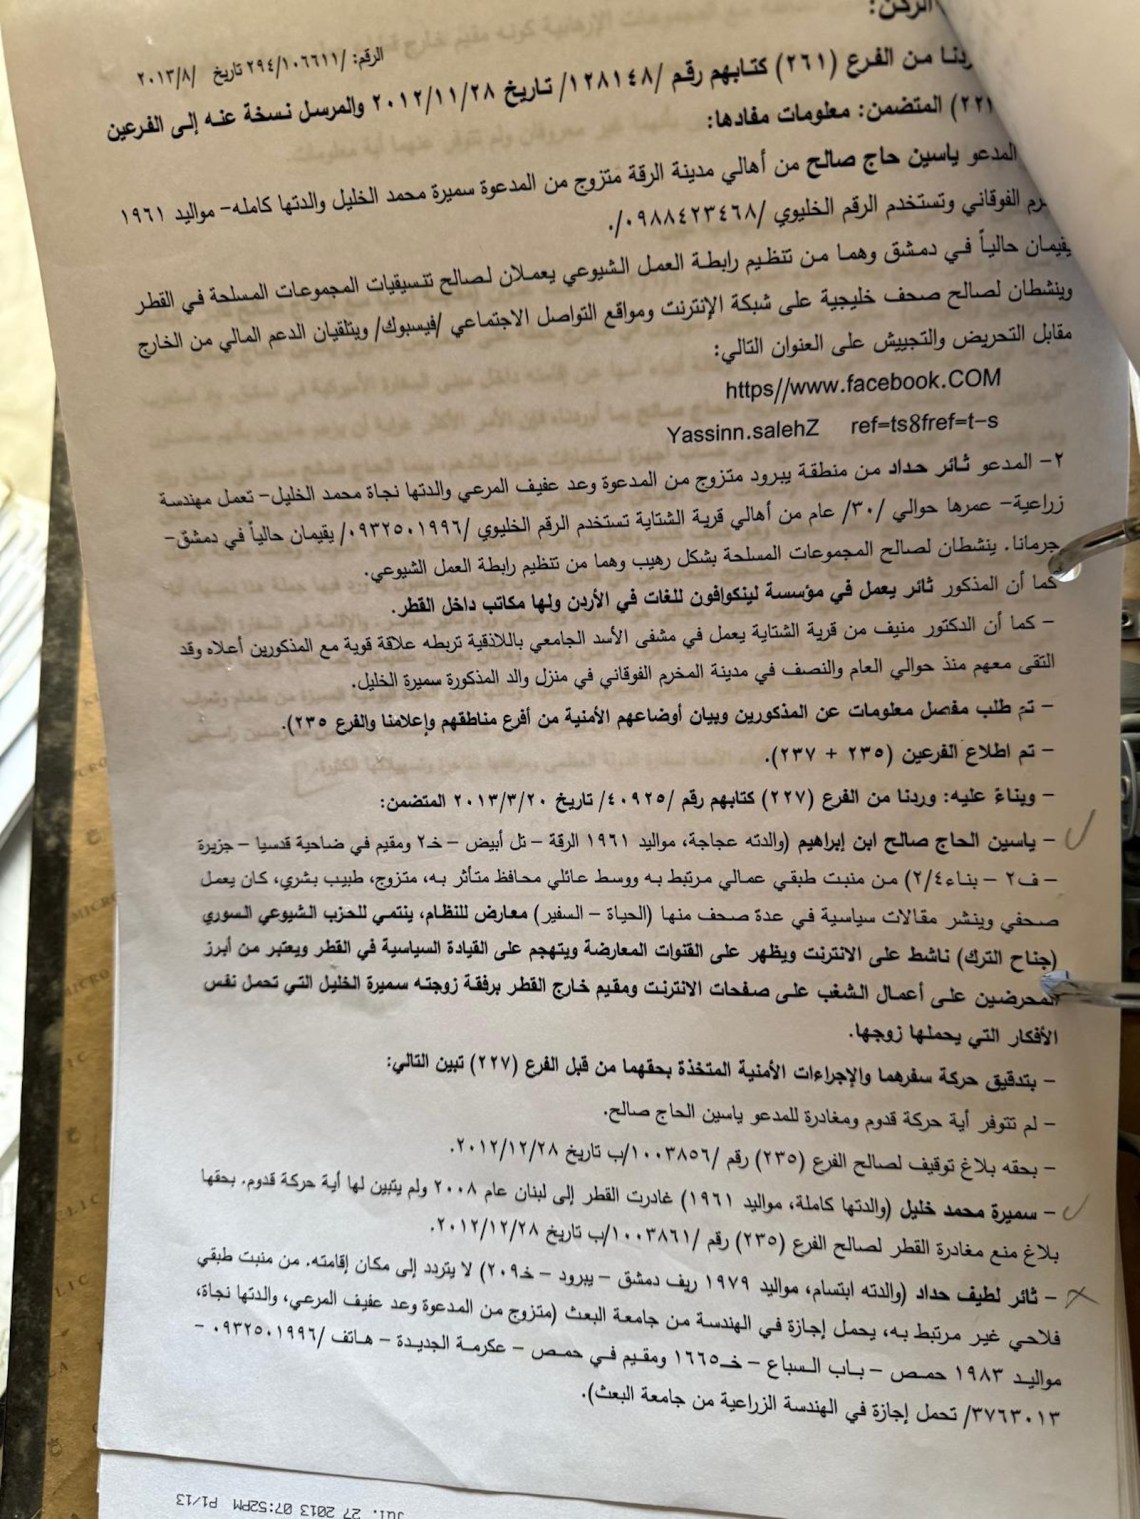 الركن:
الرقم: /٢٩٤/١٠٦٦١١ تاريخ /٢٠١٣/٨
ردنا من الفرع (٢٦١) كتابهم رقم /١٢٨١٤٨/ تاريخ ٢٠١٢/١١/٢٨ والمرسل نسخة عنه إلى الفرعين
٢٢١) المتضمن: معلومات مفادها:
المدعو ياسين حاج صالح من أهالي مدينة الرقة متزوج من المدعوة سميرة محمد الخليل والدتها كامله– مواليد ١٩٦١
خرم الفوقاني وتستخدم الرقم الخليوي /٠٩٨٨٤٢٣٤٦٨/.
يقيمان حالياً في دمشق وهما من تنظيم رابطة العمل الشيوعي يعملان لصالح تنسيقيات المجموعات المسلحة في القطر
وينشطان لصالح صحف خليجية على شبكة الإنترنت ومواقع التواصل الاجتماعي /فيسبوك/ ويتلقيان الدعم المالي من الخارج
مقابل التحريض والتجييش على العنوان التالي:
https//www.facebook.COM
Yassinn.salehZ ref=ts8fref=t–s
٢– المدعو ثائر حداد من منطقة يبرود متزوج من المدعوة وعد عفيف المرعي والدتها نجاة محمد الخليل– تعمل مهندسة
زراعية– عمرها حوالي /٣٠/ عام من أهالي قرية الشتاية تستخدم الرقم الخليوي /٠٩٣٢٥٠١٩٩٦/ يقيمان حالياً في دمشق–
جرمانا. ينشطان لصالح المجموعات المسلحة بشكل رهيب وهما من تنظيم رابطة العمل الشيوعي.
كما أن المذكور ثائر يعمل في مؤسسة لينكوافون للغات في الأردن ولها مكاتب داخل القطر.
– كما أن الدكتور منيف من قرية الشتاية يعمل في مشفى الأسد الجامعي باللاذقية تربطه علاقة قوية مع المذكورين أعلاه وقد
التقى معهم منذ حوالي العام والنصف في مدينة المخرم الفوقاني في منزل والد المذكورة سميرة الخليل.
– تم طلب مفصل معلومات عن المذكورين وبيان أوضاعهم الأمنية من أفرع مناطقهم وإعلامنا والفرع ٢٣٥).
– تم اطلاع الفرعين (٢٣٥ + ٢٣٧).
– وبناءً عليه: وردنا من الفرع (٢٢٧) كتابهم رقم /٤٠٩٢٥/ تاريخ ٢٠١٣/٣/٢٠ المتضمن:
– ياسين الحاج صالح ابن إبراهيم (والدته عجاجة، مواليد ١٩٦١ الرقة – تل أبيض – خـ٢ ومقيم في ضاحية قدسيا – جزيرة
– ف٢ – بناء٢/٤) من منبت طبقي عمالي مرتبط به ووسط عائلي محافظ متأثر به، متزوج، طبيب بشري، كان يعمل
صحفي وينشر مقالات سياسية في عدة صحف منها (الحياة – السفير) معارض للنظام، ينتمي للحزب الشيوعي السوري
(جناح الترك) ناشط على الانترنت ويظهر على القنوات المعارضة ويتهجم على القيادة السياسية في القطر ويعتبر من أبرز
المحرضين على أعمال الشغب على صفحات الانترنت ومقيم خارج القطر برفقة زوجته سميرة الخليل التي تحمل نفس
الأفكار التي يحملها زوجها.
– بتدقيق حركة سفرهما والإجراءات الأمنية المتخذة بحقهما من قبل الفرع (٢٢٧) تبين التالي:
– لم تتوفر أية حركة قدوم ومغادرة للمدعو ياسين الحاج صالح.
– بحقه بلاغ توقيف لصالح الفرع (٢٣٥) رقم /١٠٠٣٨٥٦/ب تاريخ ٢٠١٢/١٢/٢٨.
– سميرة محمد خليل (والدتها كاملة، مواليد ١٩٦١) غادرت القطر إلى لبنان عام ٢٠٠٨ ولم يتبين لها أية حركة قدوم. بحقها
بلاغ منع مغادرة القطر لصالح الفرع (٢٣٥) رقم /١٠٠٣٨٦١/ب تاريخ ٢٠١٢/١٢/٢٨.
– ثائر لطيف حداد (والدته ابتسام، مواليد ١٩٧٩ ريف دمشق – يبرود – خـ٢٠٩) لا يتردد إلى مكان إقامته. من منبت طبقي
فلاحي غير مرتبط به، يحمل إجازة في الهندسة من جامعة البعث (متزوج من المدعوة وعد عفيف المرعي، والدتها نجاة،
مواليد ١٩٨٣ حمص – باب السباع – خـ١٦٦٥ ومقيم في حمص – عكرمة الجديدة – هاتف /٠٩٣٢٥٠١٩٩٦ –
٣٧٦٣٠١٣/ تحمل إجازة في الهندسة الزراعية من جامعة البعث).
Jul. 27 2013 07:52PM P1/13